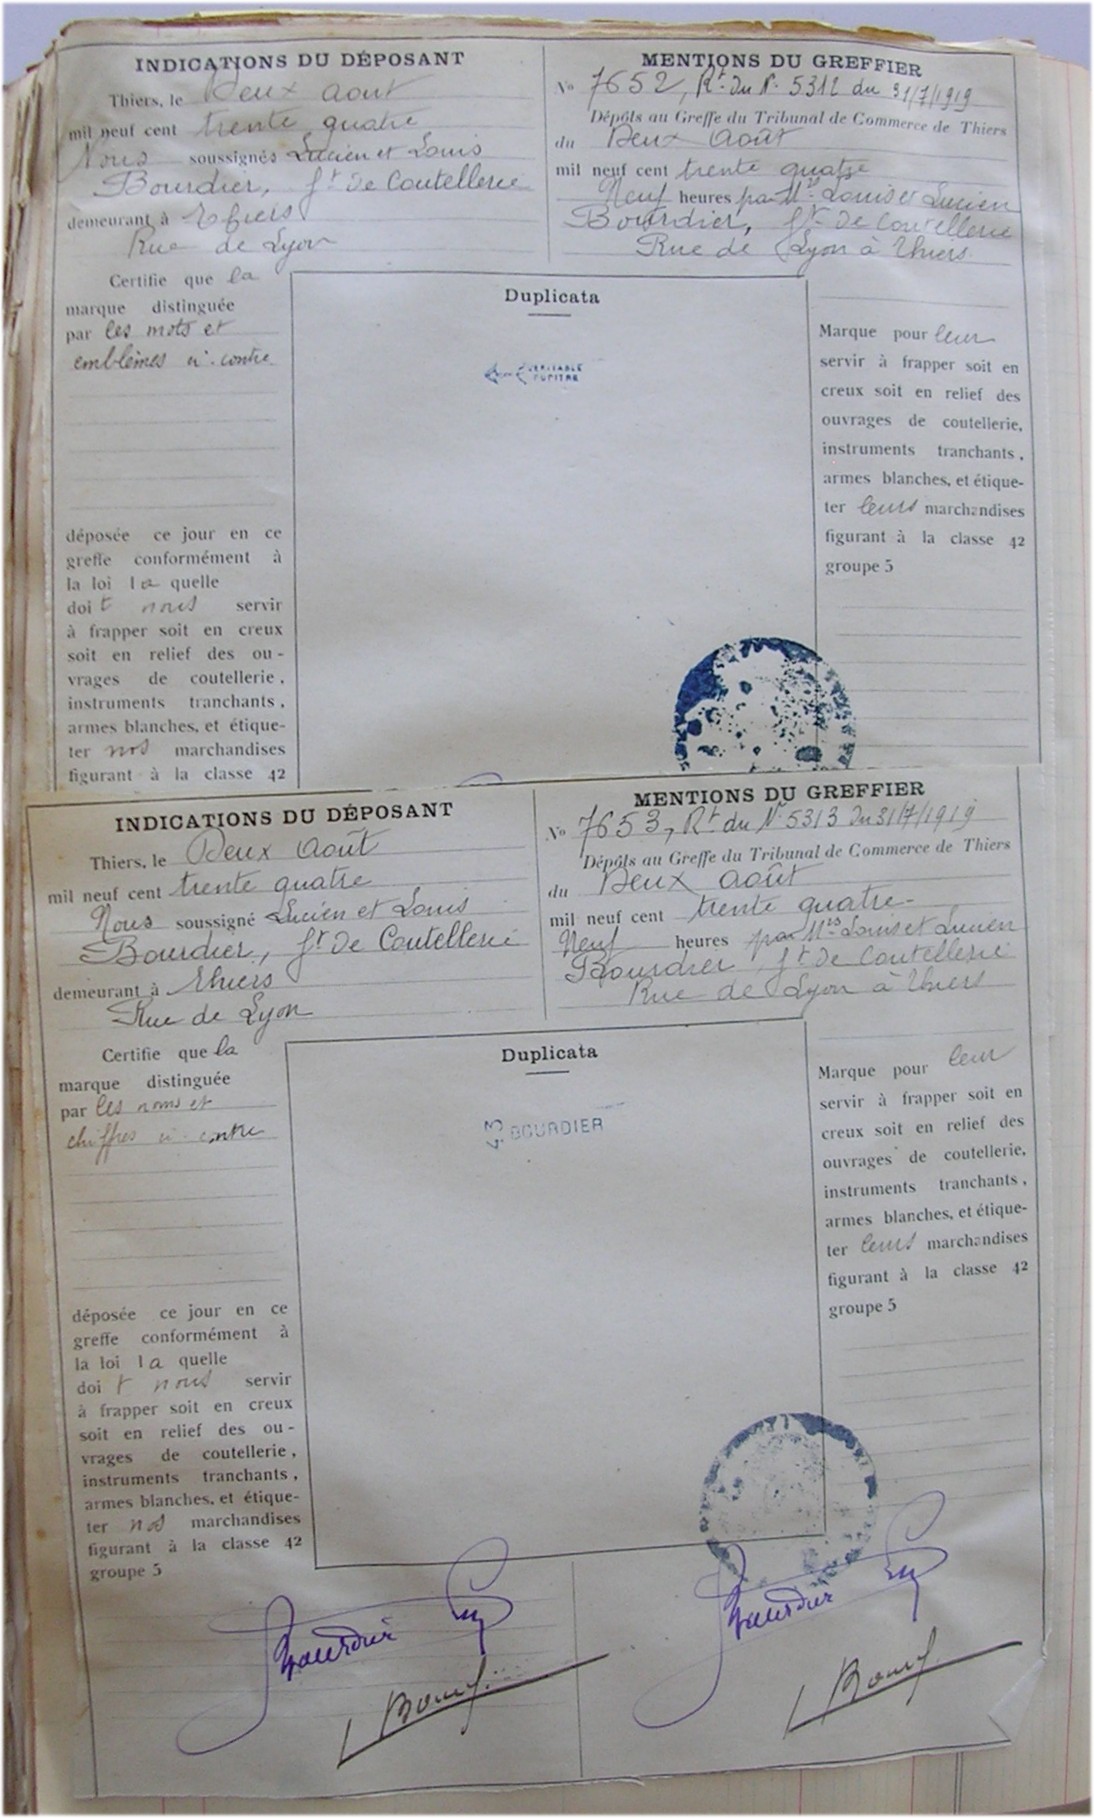 INDICATIONS DU DÉPOSANT
Thiers, le Deux aout
mil neuf cent trente quatre
Nous soussignés Lucien et Louis
Bourdier, ft de Coutellerie
demeurant à Thiers
Rue de Lyon
MENTIONS DU GREFFIER
No 7652, Rt du No 5312 du 31/7/1919
Dépôts au Greffe du Tribunal de Commerce de Thiers
du Deux Août
mil neuf cent trente quatre
Neuf heures par Mrs Louis et Lucien
Bourdier, ft de Coutellerie
Rue de Lyon à Thiers
Certifie que la
marque distinguée
par les mots et
emblèmes ci-contre
déposée ce jour en ce
greffe conformément à
la loi la quelle
doit nous servir
à frapper soit en creux
soit en relief des ou-
vrages de coutellerie,
instruments tranchants,
armes blanches, et étique-
ter nos marchandises
figurant à la classe 42
Duplicata
VERITABLE
PUPITRE
Marque pour leur
servir à frapper soit en
creux soit en relief des
ouvrages de coutellerie,
instruments tranchants,
armes blanches, et étique-
ter leurs marchandises
figurant à la classe 42
groupe 5
INDICATIONS DU DÉPOSANT
Thiers, le Deux Août
mil neuf cent trente quatre
Nous soussigné Lucien et Louis
Bourdier, ft de Coutellerie
demeurant à Thiers
Rue de Lyon
MENTIONS DU GREFFIER
No 7653, Rt du No 5313 du 31/7/1919
Dépôts au Greffe du Tribunal de Commerce de Thiers
du Deux Août
mil neuf cent trente quatre
Neuf heures par Mrs Louis et Lucien
Bourdier ft de Coutellerie
Rue de Lyon à Thiers
Certifie que la
marque distinguée
par les noms et
chiffres ci-contre
déposée ce jour en ce
greffe conformément à
la loi la quelle
doit nous servir
à frapper soit en creux
soit en relief des ou-
vrages de coutellerie,
instruments tranchants,
armes blanches, et étique-
ter nos marchandises
figurant à la classe 42
groupe 5
Duplicata
43 BOURDIER
Marque pour leur
servir à frapper soit en
creux soit en relief des
ouvrages de coutellerie,
instruments tranchants,
armes blanches, et étique-
ter leurs marchandises
figurant à la classe 42
groupe 5
Bourdier
Bourdier